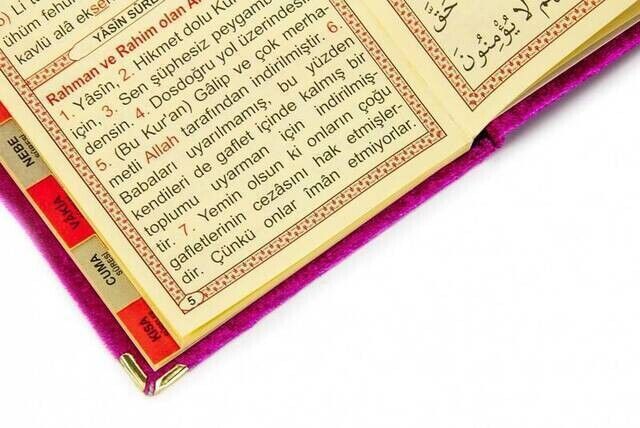 ühüm fehüm
kavlü alâ ekse
YÂSİN SÛR
Rahman ve Rahim olan A
1. Yâsin, 2. Hikmet dolu Kur
için, 3. Sen şüphesiz peygamb
densin. 4. Dosdoğru yol üzerindesi
5. (Bu Kur'an) Gâlip ve çok merha-
metli Allah tarafından indirilmiştir. 6.
Babaları uyarılmamış, bu yüzden
kendileri de gaflet içinde kalmış bir
toplumu uyarman için indirilmiş-
tir. 7. Yemin olsun ki onların çoğu
gafletlerinin cezasını hak etmişler-
dir. Çünkü onlar îmân etmiyorlar.
5
حَقَّ
لَا يُؤْمِنُونَ
NEBE
VÂKIA
CUMA
SÛRESİ
KISA